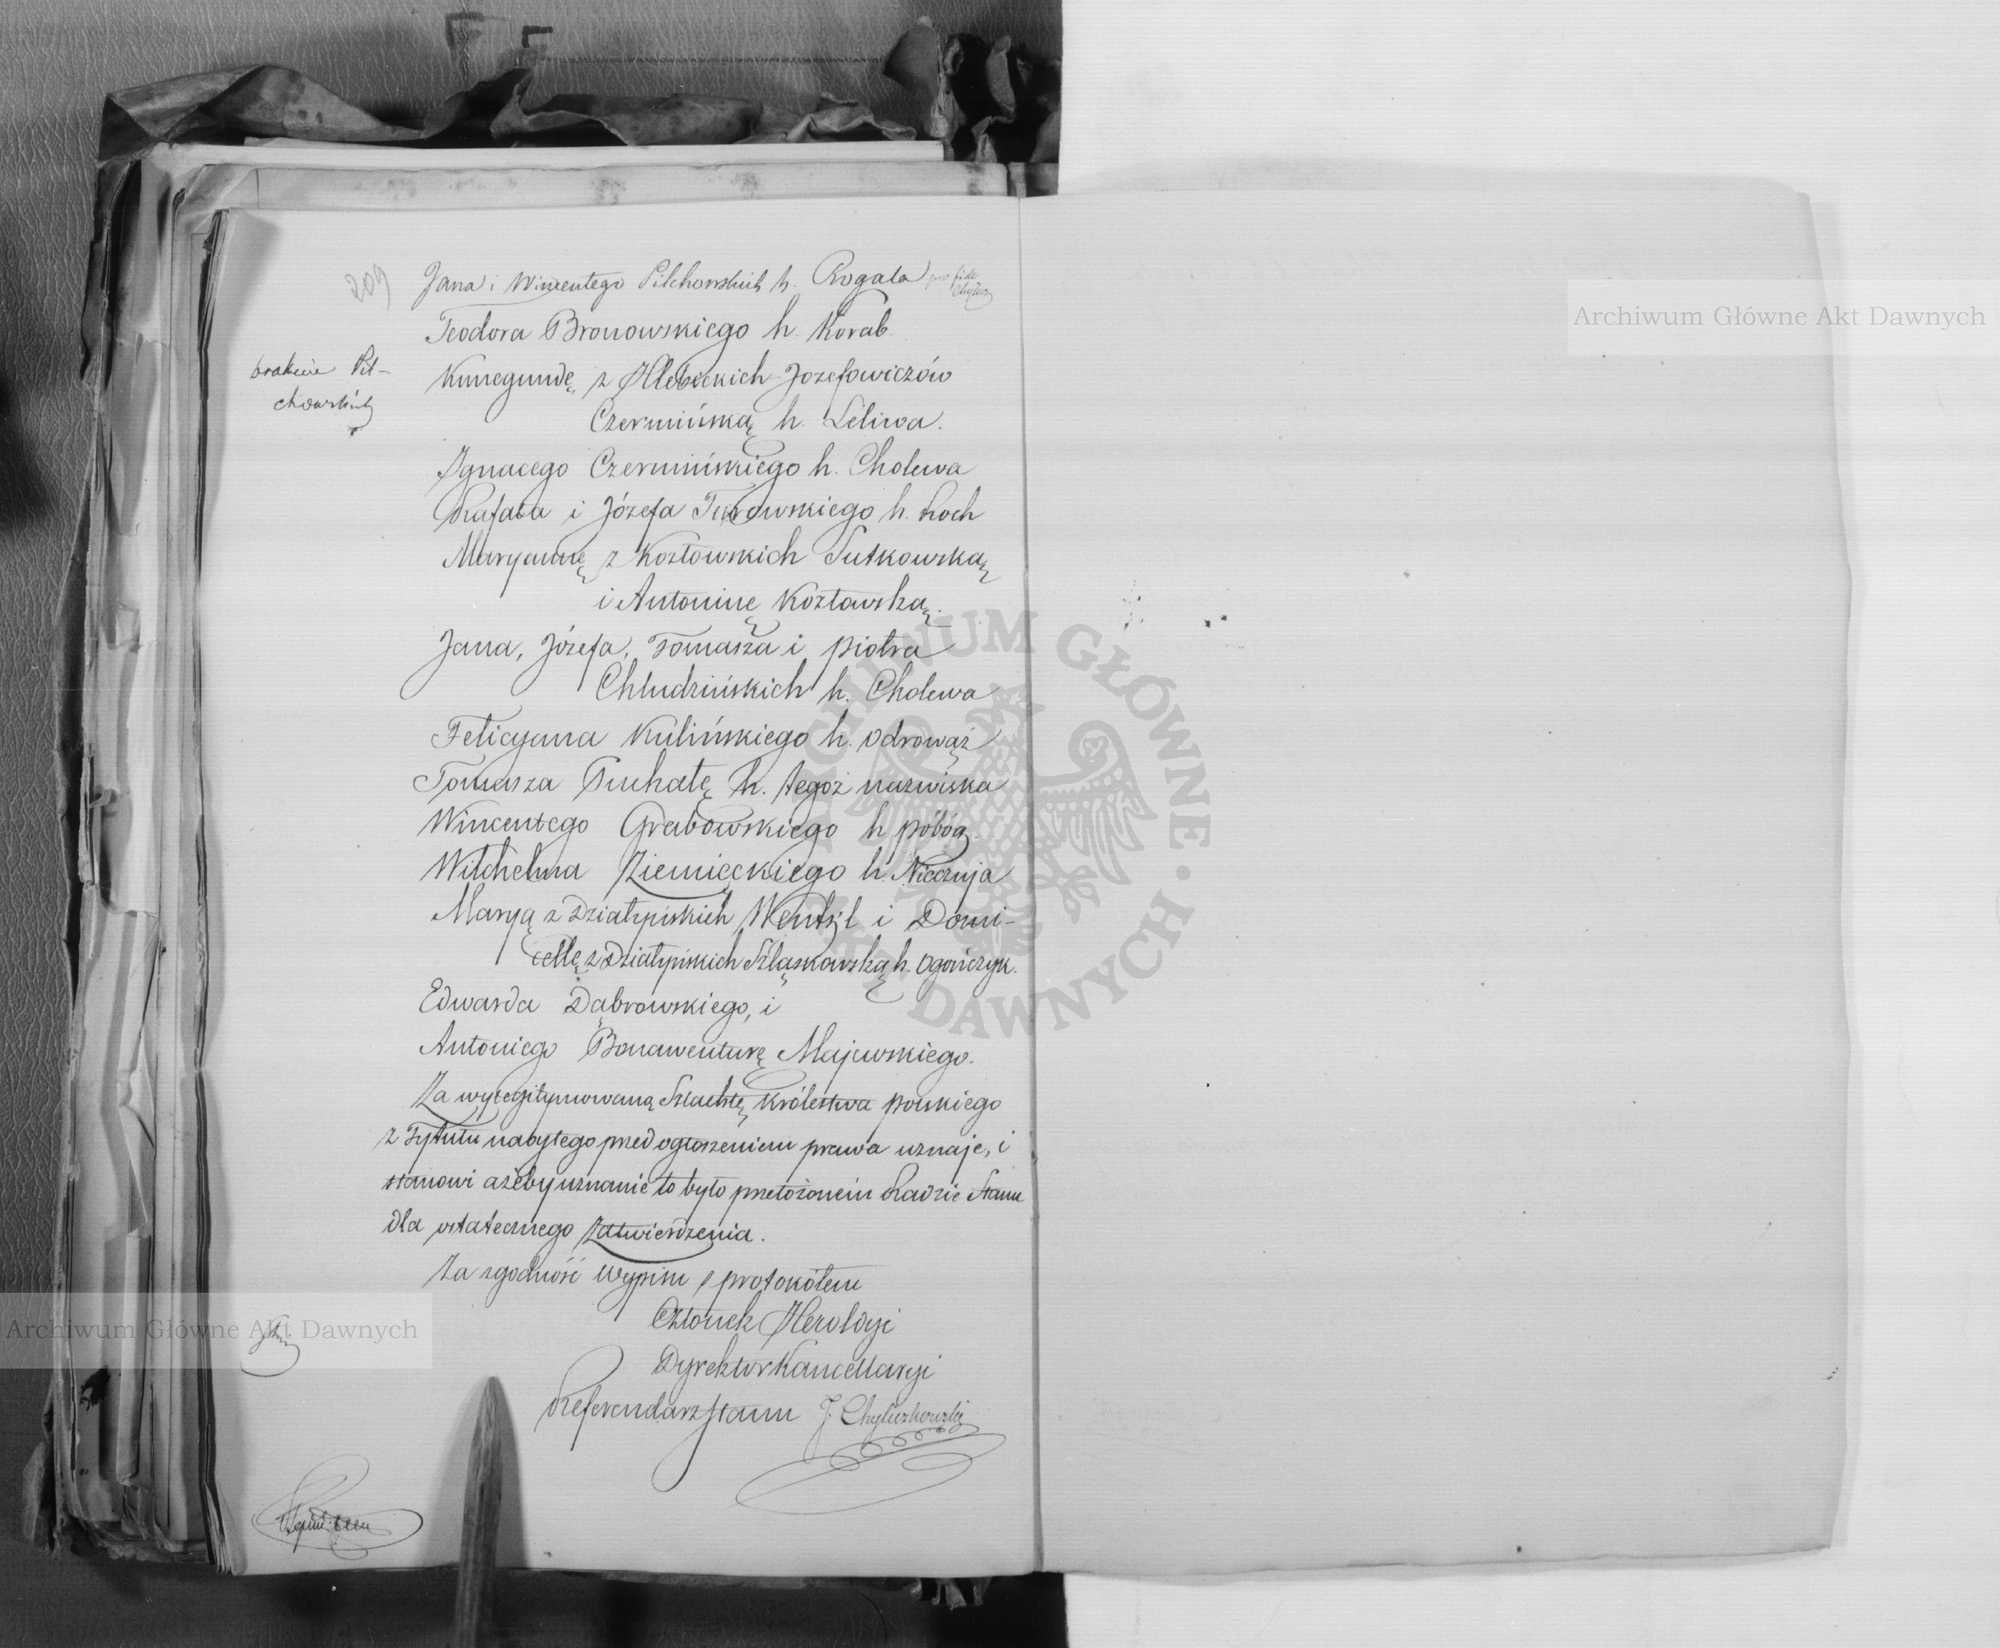 209
Jana i Wincentego Pilchowskich h. Rogala pro fide
Teodora Bronowskiego h. Korab.
brakuie Pil-
chowskich
Kunegundę z Hlebickich-Jozefowiczów
Czermińską h. Leliwa.
Ignacego Czermińskiego h. Cholewa
Rafała i Józefa Turowskiego h. Roch
Maryannę z Kozłowskich Sutkowską
i Antoninę Kozłowską.
Jana, Józefa, Tomasza i Piotra
Chludzińskich h. Cholewa
Felicyana Kulińskiego h. Odrowąż
Tomasza Puchałę h. tegoż nazwiska
Wincentego Grabowskiego h Pobóg.
Wilchelma Ziemięckiego h. Nieczuja
Maryą z Działyńskich Wentzl i Domi-
cellę z Działyńskich Szląskowską h. Ogończyk.
Edwarda Dąbrowskiego, i
Antoniego Bonawenturę Majewskiego.
Za wylegitymowaną Szlachtę Królestwa Polskiego
z Tytułu nabytego przed ogłoszeniem prawa uznaje, i
stanowi ażeby uznanie to było przełożonem Radzie Stanu
dla ostatecznego Zatwierdzenia.
Za zgodność Wypisu z protokółem
Członek Heroldyi
Dyrektor Kancellaryi
Referendarz Stanu J. Chyliczkowski
Archiwum Główne Akt Dawnych
Archiwum Główne Akt Dawnych
ARCHIWUM GŁÓWNE AKT DAWNYCH